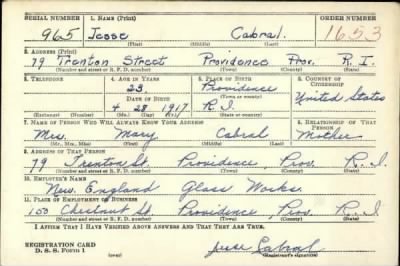 SERIAL NUMBER 1. NAME (Print) ORDER NUMBER
965 Jesse Cabral 1653
(First) (Middle) (Last)
2. ADDRESS (Print)
79 Trenton Street Providence Prov. R. I.
(Number and street or R. F. D. number) (Town) (County) (State)
3. TELEPHONE 4. AGE IN YEARS 5. PLACE OF BIRTH 6. COUNTRY OF CITIZENSHIP
23 Providence
DATE OF BIRTH (Town or county)
4 28 1917 R. I. United States
(Exchange) (No.) (Mo.) (Day) (Yr.) (State or country)
7. NAME OF PERSON WHO WILL ALWAYS KNOW YOUR ADDRESS 8. RELATIONSHIP OF THAT PERSON
Mrs. Mary Cabral Mother
(Mr., Mrs., Miss) (First) (Middle) (Last)
9. ADDRESS OF THAT PERSON
79 Trenton St. Providence, Prov. R. I.
(Number and street or R. F. D. number) (Town) (County) (State)
10. EMPLOYER'S NAME
New England Glass Works.
11. PLACE OF EMPLOYMENT OR BUSINESS
150 Chestnut St. Providence, Prov. R. I
(Number and street or R. F. D. number) (Town) (County) (State)
I AFFIRM THAT I HAVE VERIFIED ABOVE ANSWERS AND THAT THEY ARE TRUE.
REGISTRATION CARD
D. S. S. Form 1 (over) Jesse Cabral
(Registrant's signature)